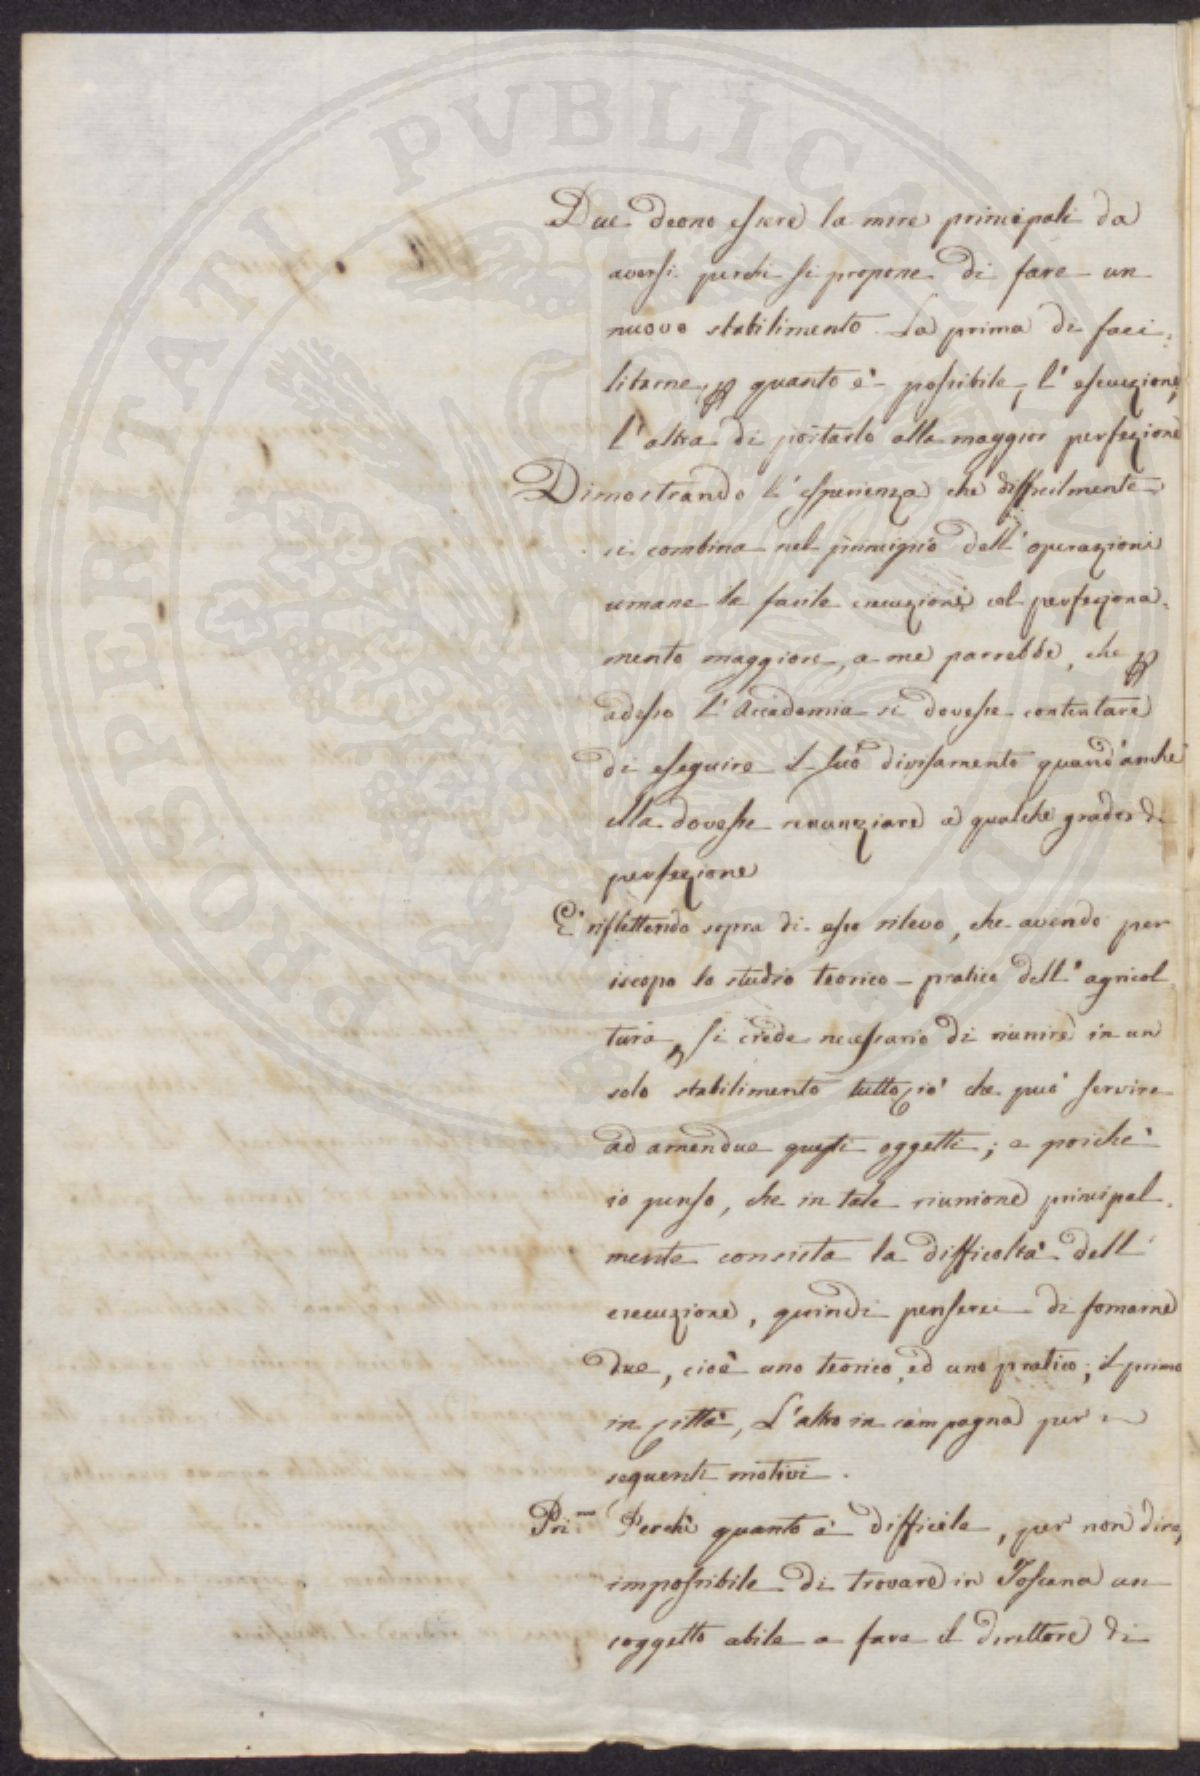 PROSPERITATI PVBLICAE
Due deono essere le mire principali da
aversi perchi si propone di fare un
nuovo stabilimento. La prima di faci=
litarne, p quanto è possibile, l'esecuzione,
l'altra di portarlo alla maggior perfezione
Dimostrando l'esperienza che difficilmente
si combina nel principio dell'operazioni
umane la facile esecuzione col perfeziona=
mento maggiore, a me parrebbe, che p
adesso l'Accademia si dovesse contentare
di eseguire il suo divisamento quand'anche
ella dovesse renunziare a qualche grado di
perfezione
E' riflettendo sopra di esso rilevo, che avendo per
iscopo lo studio teorico-pratico dell'agricol=
tura, si crede necessario di riunire in un
solo stabilimento tutto ciò che può servire
ad amendue questi oggetti; e poichè
io penso, che in tale riunione principal=
mente consista la difficoltà dell'
esecuzione, quindi penserei di formarne
due, cioè uno teorico, ed uno pratico; il primo
in città, l'altro in campagna per i
seguenti motivi.
Pri:mo Perchè quanto è difficile, per non dire,
impossibile di trovare in Toscana un
soggetto abile a fare il direttore di